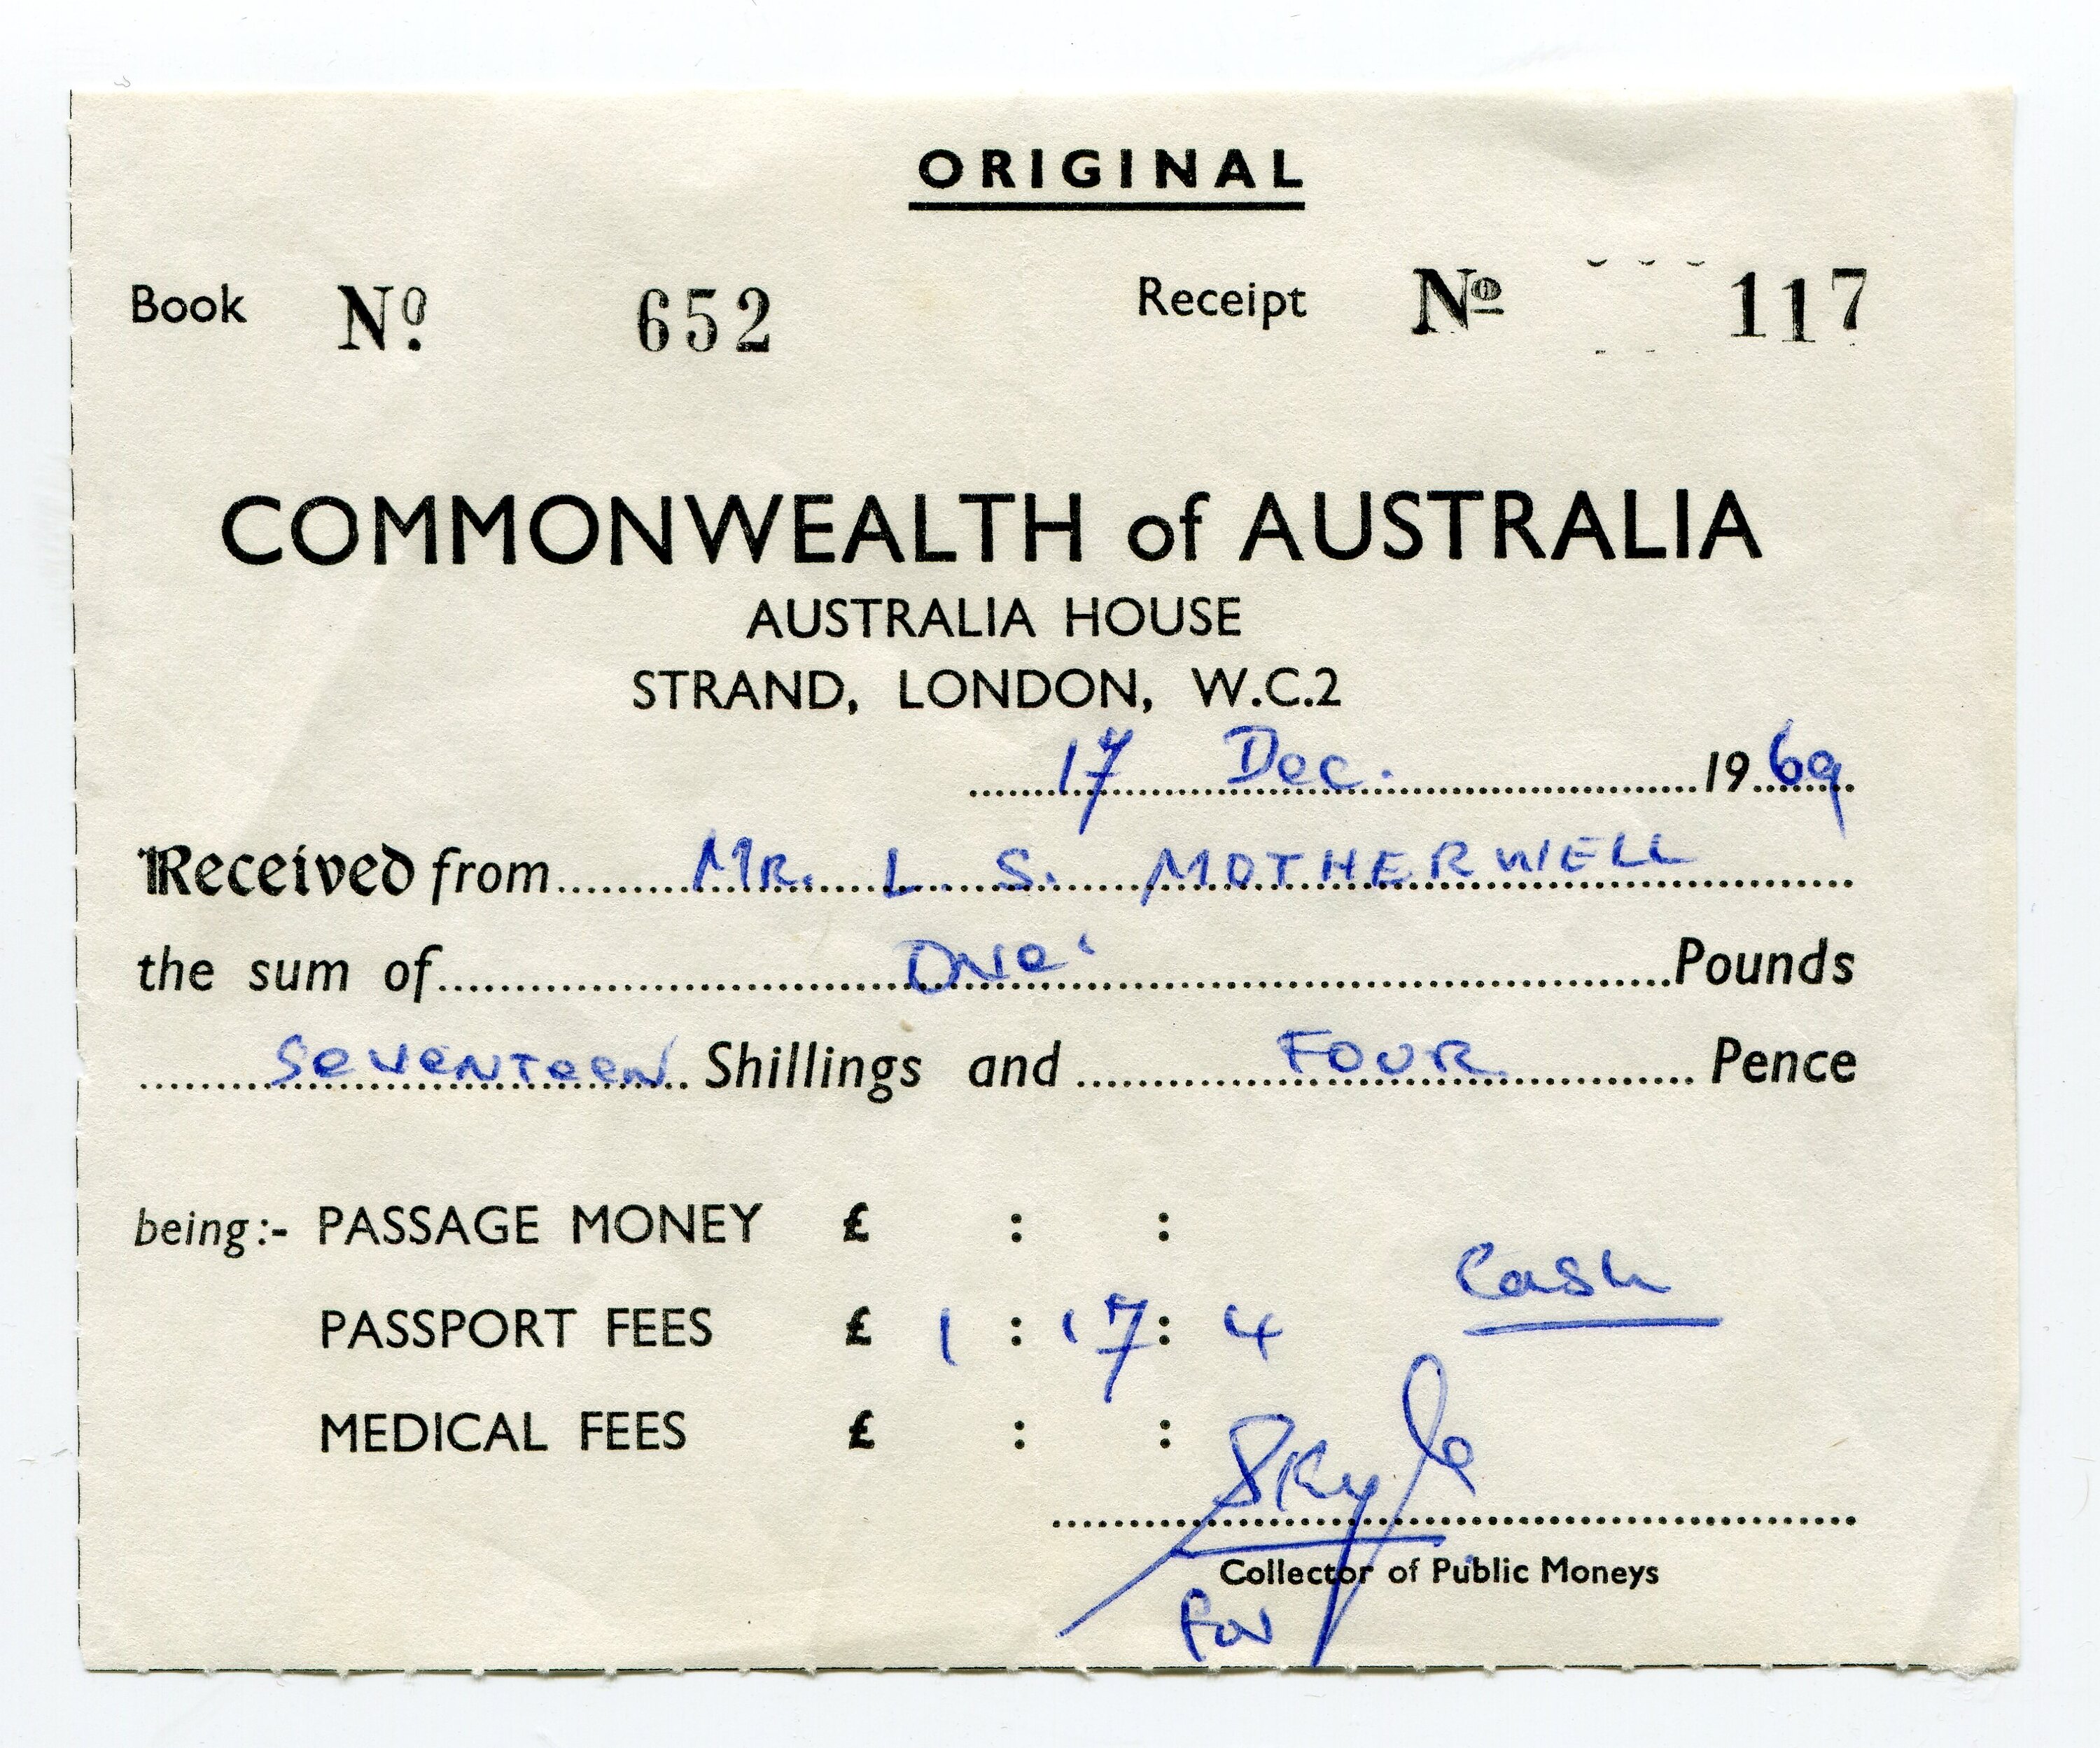 ORIGINAL
Book Nº 652 Receipt Nº 117
COMMONWEALTH of AUSTRALIA
AUSTRALIA HOUSE
STRAND, LONDON, W.C.2
17 Dec. 1969
Received from MR. L. S. MOTHERWELL
the sum of One Pounds
Seventeen Shillings and FOUR Pence
being:- PASSAGE MONEY £ : :
Cash
PASSPORT FEES £ 1 : 17 : 4
MEDICAL FEES £ : :
SKyle
Collector of Public Moneys
for